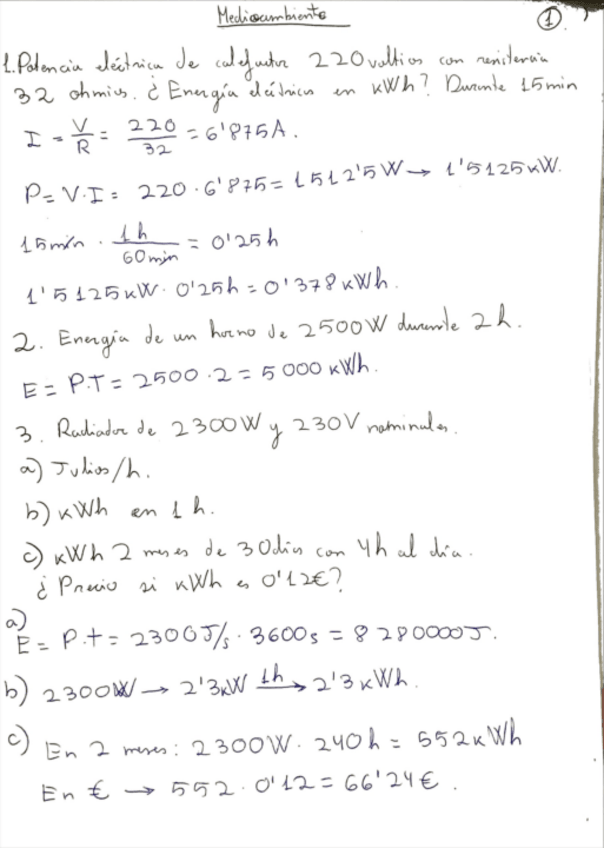 Medioambiente
1
1. Potencia eléctrica de calefactor 220 voltios con resistencia
32 ohmios. ¿Energía eléctrica en kWh? Durante 15min
I = V/R = 220/32 = 6'875A.
P = V.I = 220 · 6'875 = 1512'5W → 1'5125kW.
15min · 1h/60min = 0'25h
1'5125kW · 0'25h = 0'378kWh.
2. Energía de un horno de 2500W durante 2h.
E = P.T = 2500 · 2 = 5000 kWh.
3. Radiador de 2300W y 230V nominales.
a) Julios/h.
b) kWh en 1h.
c) kWh 2 meses de 30 días con 4h al día.
¿Precio si kWh es 0'12€?
a)
E = P.t = 2300J/s · 3600s = 8280000J.
b) 2300W → 2'3kW 1h→ 2'3kWh.
c) En 2 meses: 2300W · 240h = 552kWh
En € → 552 · 0'12 = 66'24€.